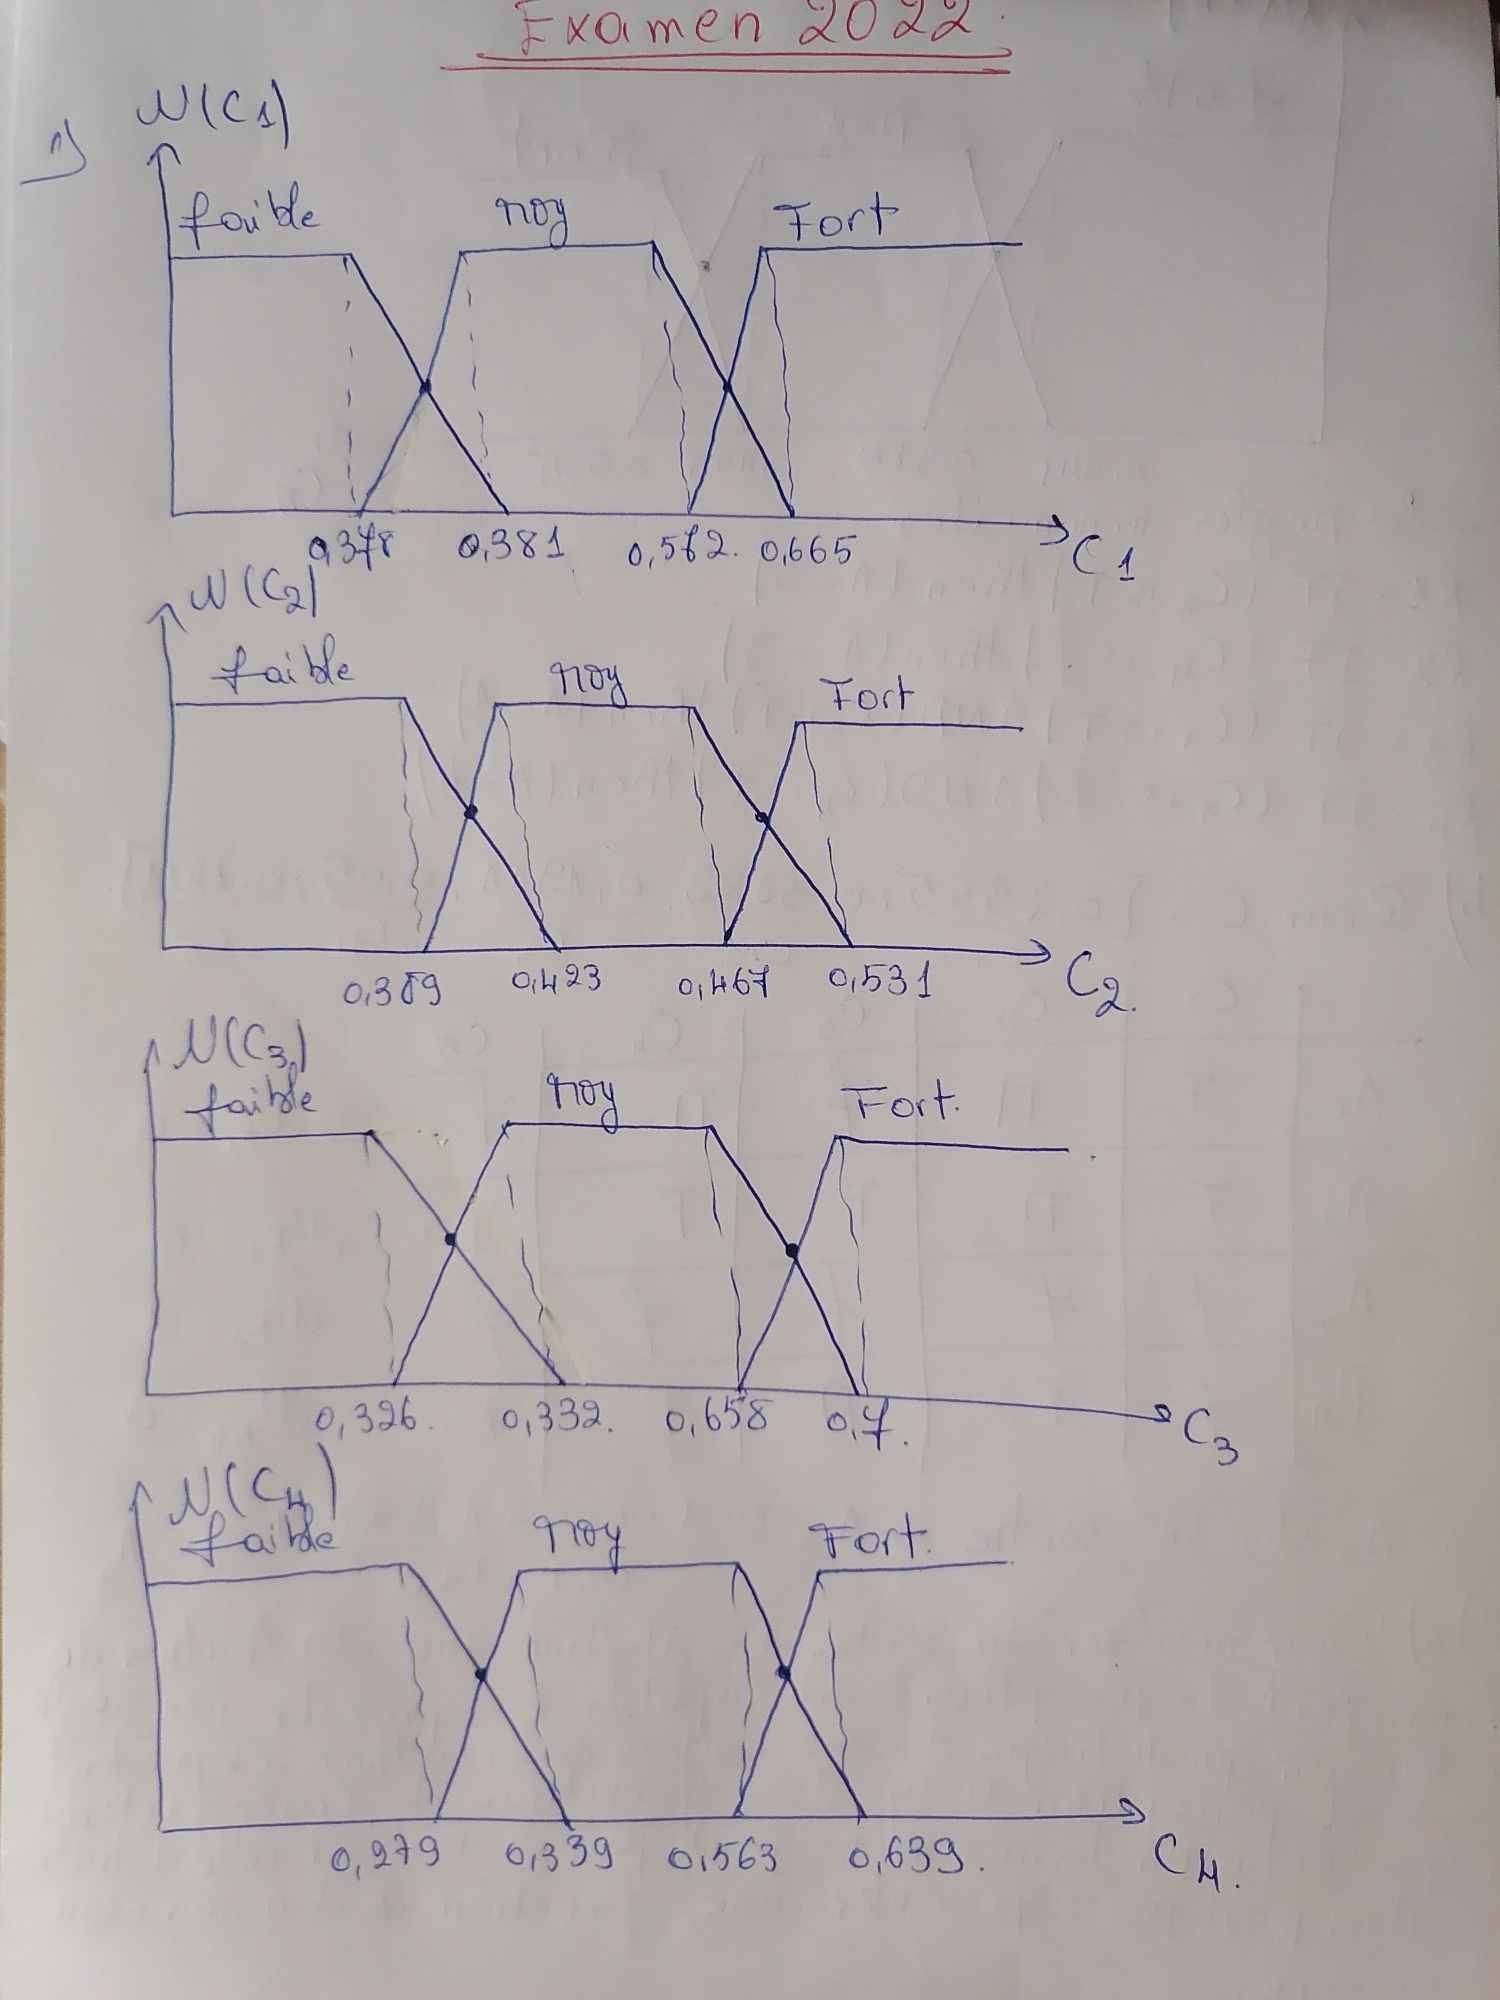 Examen 2022
1)
N(C1)
faible moy Fort
0,378 0,381 0,572. 0,665 C1
N(C2)
faible moy Fort
0,389 0,423 0,467 0,531 C2.
N(C3)
faible moy Fort.
0,326. 0,332. 0,658 0,7. C3
N(C4)
faible moy Fort.
0,279 0,339 0,563 0,639. C4.